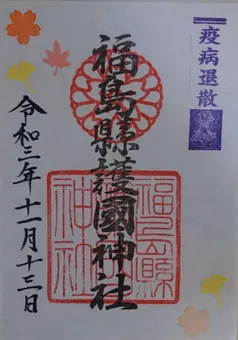 疫病退散
福島縣護國神社
令和三年十一月十三日
福島縣
神社